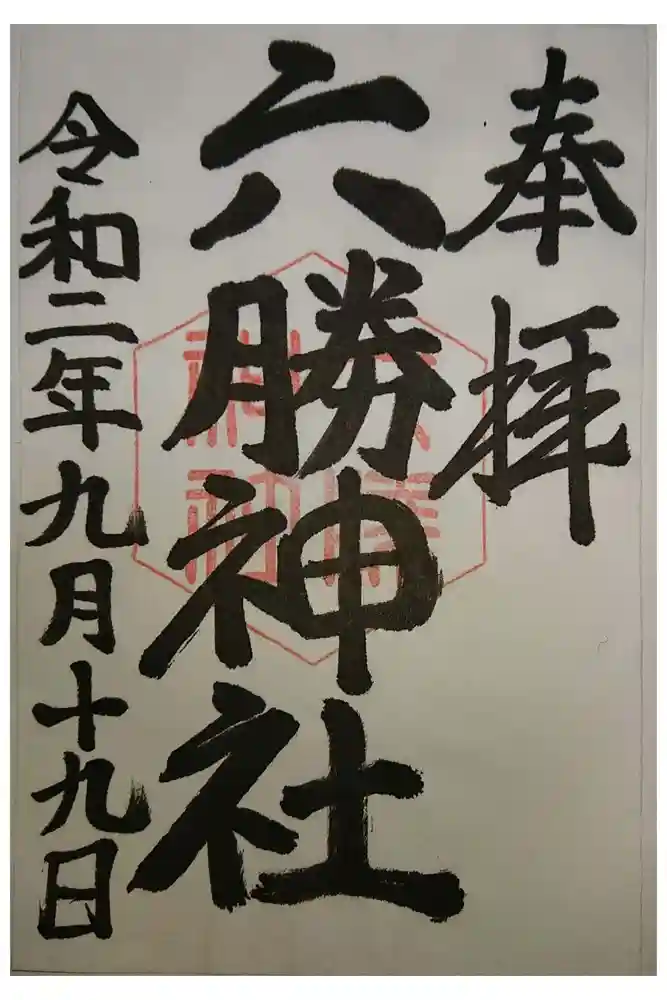 奉拝
六勝神社
令和二年九月十九日